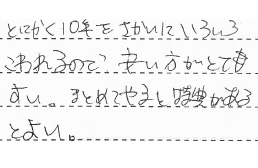 とにかく10年をさかいにいろいろ
こわれるので、安い方がとても
よい。まとめてやると特典がある
とよい。